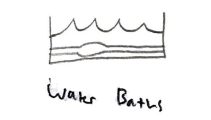 Water Baths